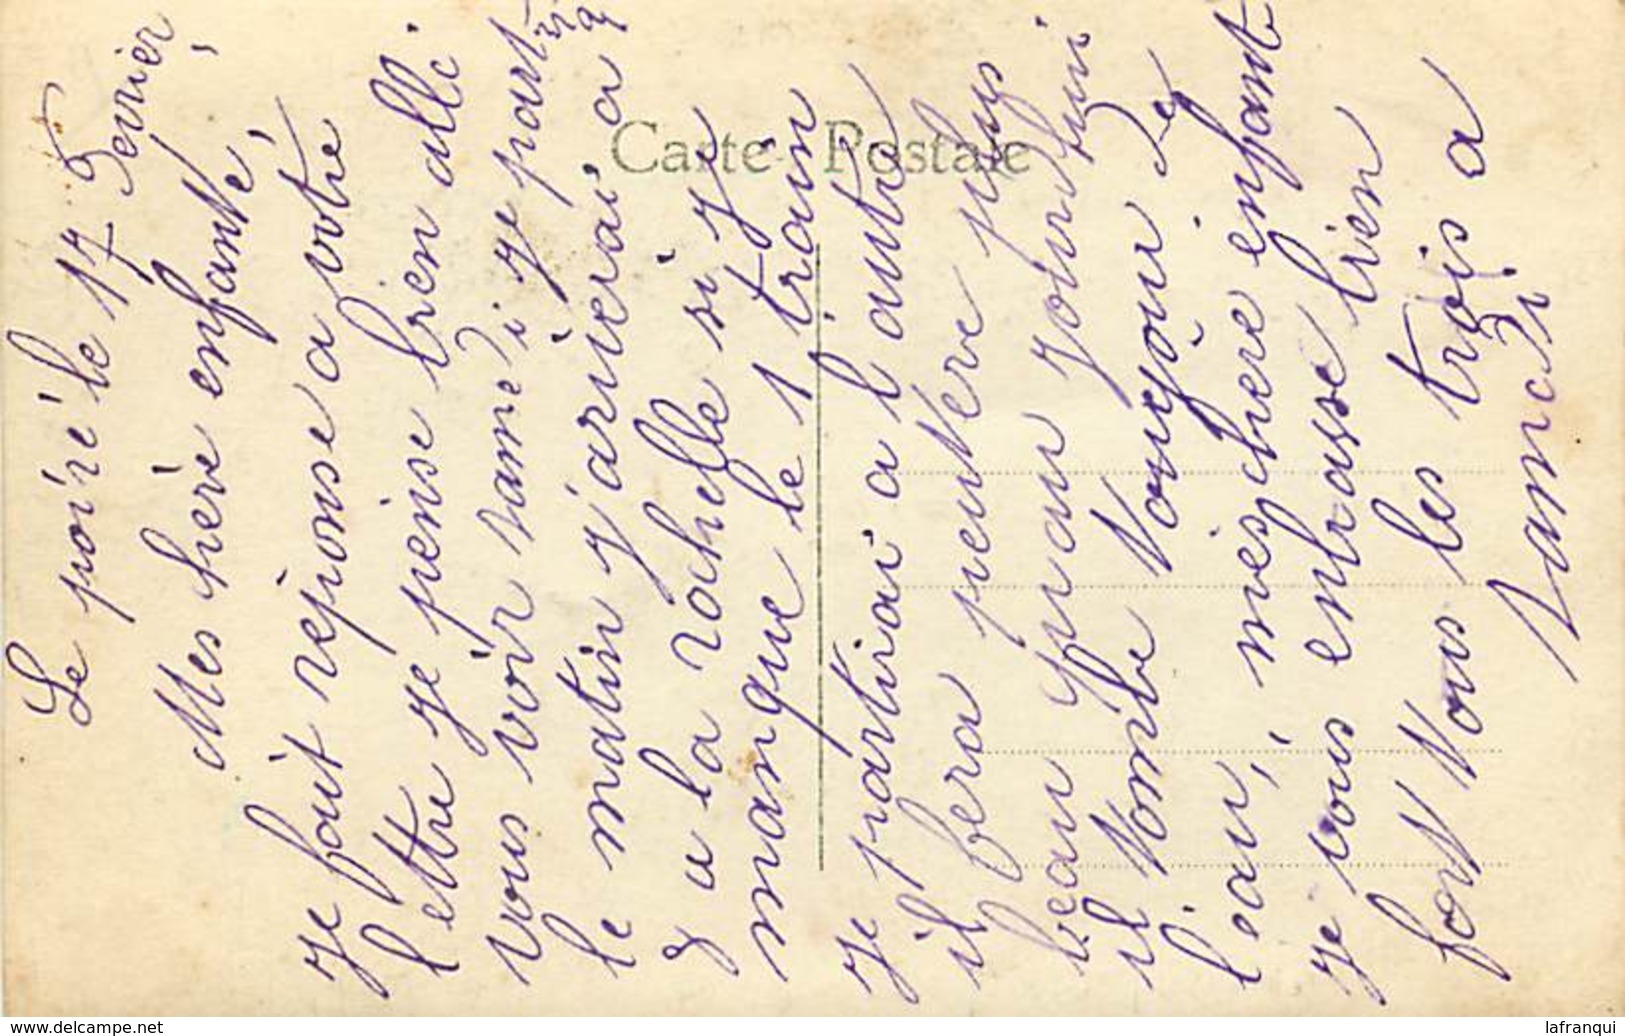 Le poiré le 17 Fevrier,
Mes hière enfante,
je fait réponse a votre
lettre je pense bien allé
vous voir samedi je part
le matin j'ariverai a
a la rochelle si je
manque le 1 train
je partirai a l'autre
il fera peutere plus
beau quau jourdhui
il tombe toujour de
l'eau, mes chere enfant
je vous embrasse bien
fort tous les trois a
samedi
Carte Postale
www.delcampe.net
lafranqui